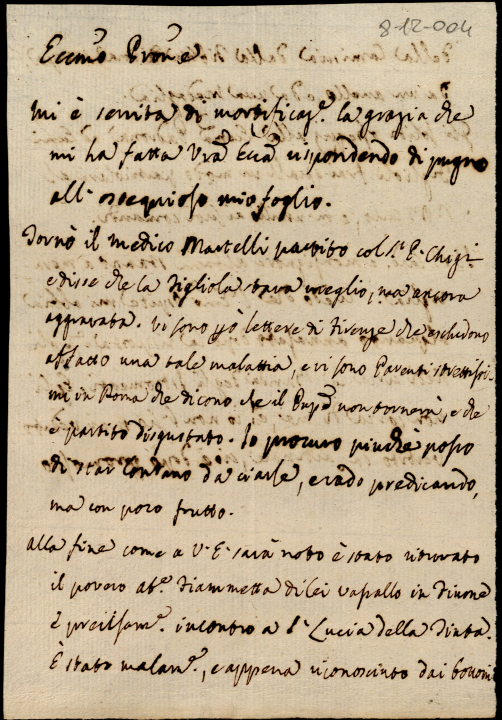 8-12-004
Eccmo Prone
Mi è servita di mortificaz.e la grazia che
mi ha fatta Vra Ecca rispondendo di pugno
all' ossequioso mio foglio.
Tornò il Medico Martelli partito col S.r P. Chigi
e disse che la Figliola stava meglio, ma ancora
aggravata. Vi sono però lettere di Firenze che escludono
affatto una tale malattia, e vi sono Parenti strettissi-
mi in Roma che dicono che il non tornerà, e che
è partito disgustato. Io procuro più che posso
di star lontano da ciarle, e vado predicando,
ma con poco frutto.
Alla fine come a V. E. sarà noto è stato ritrovato
il povero ab.e Fiammetta di lei vassallo in
è precisam.e incontro a S. Lucia della Tinta.
È stato malam.e, e appena riconosciuto dai bottoni